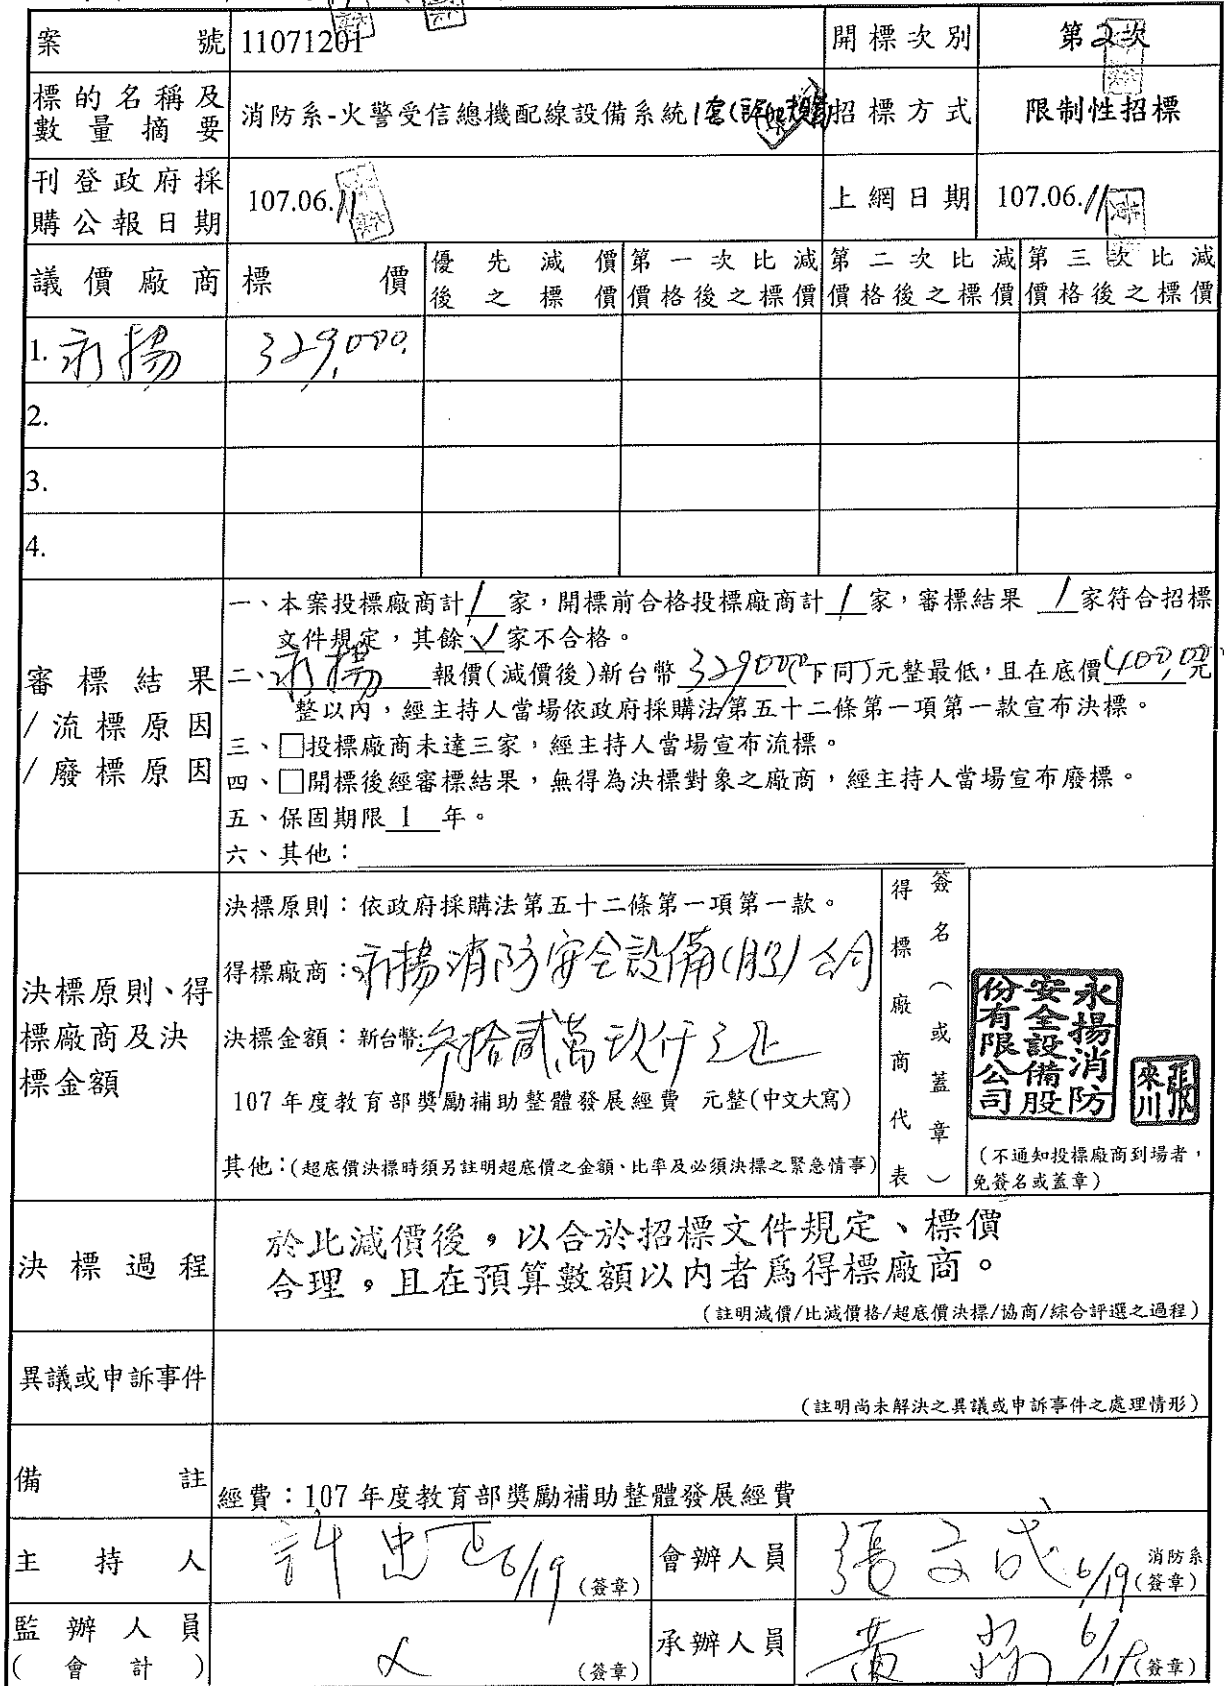 案號 11071201 開標次別 第2次
標的名稱及數量摘要 消防系-火警受信總機配線設備系統1套(詳如規範) 招標方式 限制性招標
刊登政府採購公報日期 107.06.11 上網日期 107.06.11
議價廠商 標價 優先減價後之標價 第一次比減價格後之標價 第二次比減價格後之標價 第三次比減價格後之標價
1. 永揚 329,000.
2.
3.
4.
審標結果/流標原因/廢標原因
一、本案投標廠商計 1 家,開標前合格投標廠商計 1 家,審標結果 1 家符合招標
文件規定,其餘 ✓ 家不合格。
二、永揚 報價(減價後)新台幣 329,000(下同)元整最低,且在底價 400,000 元
整以內,經主持人當場依政府採購法第五十二條第一項第一款宣布決標。
三、□投標廠商未達三家,經主持人當場宣布流標。
四、□開標後經審標結果,無得為決標對象之廠商,經主持人當場宣布廢標。
五、保固期限 1 年。
六、其他:
決標原則、得標廠商及決標金額
決標原則:依政府採購法第五十二條第一項第一款。
得標廠商:永揚消防安全設備(股)公司
決標金額:新台幣:參拾貳萬玖仟元正
107 年度教育部獎勵補助整體發展經費 元整(中文大寫)
其他:(超底價決標時須另註明超底價之金額、比率及必須決標之緊急情事)
得標廠商代表
簽名(或蓋章)
永揚消防
安全設備股
份有限公司
張來川
(不通知投標廠商到場者,
免簽名或蓋章)
決標過程
於比減價後,以合於招標文件規定、標價
合理,且在預算數額以內者為得標廠商。
(註明減價/比減價格/超底價決標/協商/綜合評選之過程)
異議或申訴事件
(註明尚未解決之異議或申訴事件之處理情形)
備註 經費:107 年度教育部獎勵補助整體發展經費
主持人 許忠 6/19 (簽章) 會辦人員 張文成 6/19 消防系 (簽章)
監辦人員(會計) (簽章) 承辦人員 黃 6/19 (簽章)